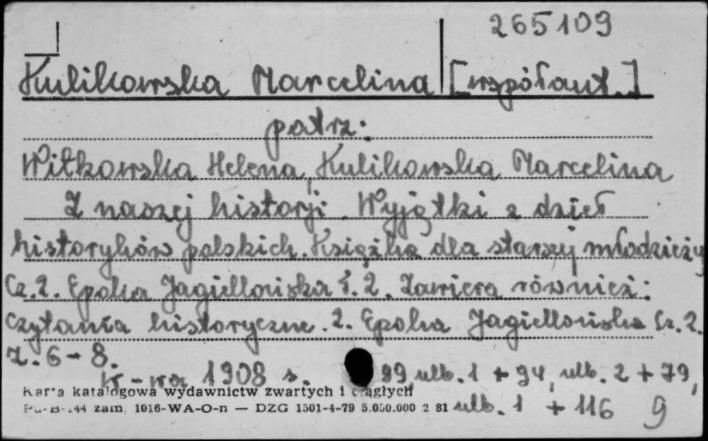 265109
Kulikowska Marcelina [współaut.]
patrz:
Witkowska Helena, Kulikowska Marcelina
Z naszej historji. Wyjątki z dzieł
historyków polskich. Książka dla starszej młodzieży
Cz.2. Epoka Jagiellońska t. 2. Zawiera również:
Czytania historyczne. 2. Epoka Jagiellońska Cz. 2.
Z. 6-8.
W-wa 1908 s. 99 ulb. 1 + 94, ulb. 2 + 79,
Karta katalogowa wydawnictw zwartych i ciągłych
Pu-B-144 zam. 1016-WA-O-n — DZG 1501-4-79 5.050.000 2 81 ulb. 1 + 116 9